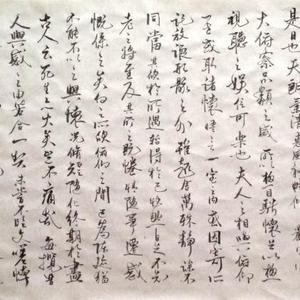 是日也天朗氣清惠風和
大俯察品類之盛所以遊目騁懷足以極
視聽之娛信可樂也夫人之相與俯仰
一世或取諸懷抱悟言一室之內或因寄所
託放浪形骸之外雖趣舍萬殊靜躁不
同當其欣於所遇暫得於己怏然自足不知
老之將至及其所之既惓情隨事遷感
慨係之矣向之所欣俛仰之間已為陳迹猶
不能不以之興懷況脩短隨化終期於盡
古人云死生亦大矣豈不痛哉每攬昔
人興感之由若合一契未嘗不臨文嗟悼